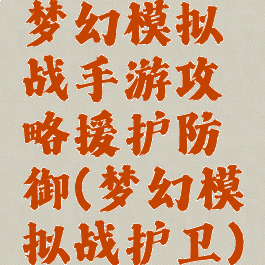 梦幻模拟
战手游攻
略援护防
御(梦幻模
拟战护卫)